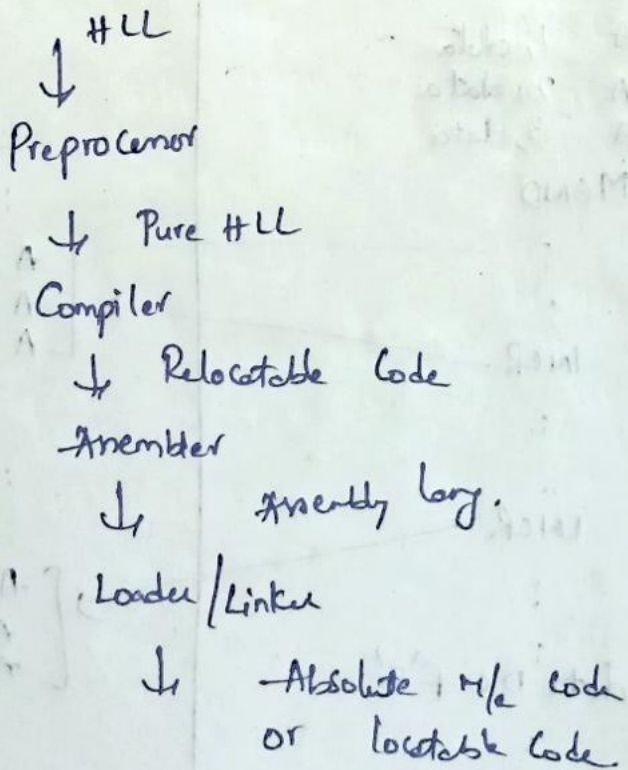 HLL
Preprocessor
Pure HLL
Compiler
Relocatable Code
Assembler
Assembly lang.
Loader/Linker
Absolute M/c code
or locatable code.